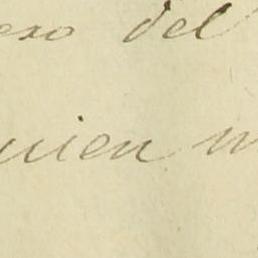 exo del
uien m